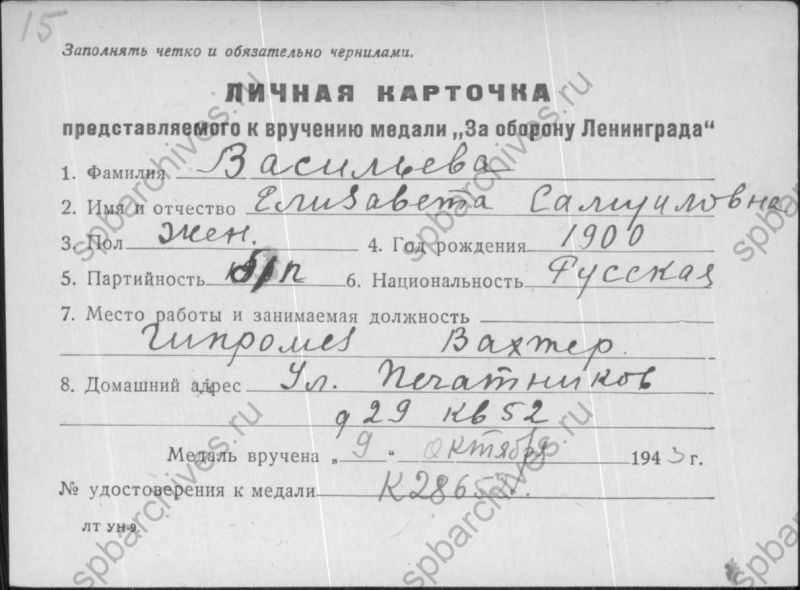 15
Заполнять четко и обязательно чернилами.
ЛИЧНАЯ КАРТОЧКА
представляемого к вручению медали „За оборону Ленинграда“
1. Фамилия Васильева
2. Имя и отчество Елизавета Самуиловна
3. Пол жен. 4. Год рождения 1900
5. Партийность б/п 6. Национальность Русская
7. Место работы и занимаемая должность
Гипромез Вахтер.
8. Домашний адрес Ул. Печатников
д 29 кв 52
Медаль вручена „9“ октября 1943 г.
№ удостоверения к медали
ЛТ УН-9.
spbarchives.ru